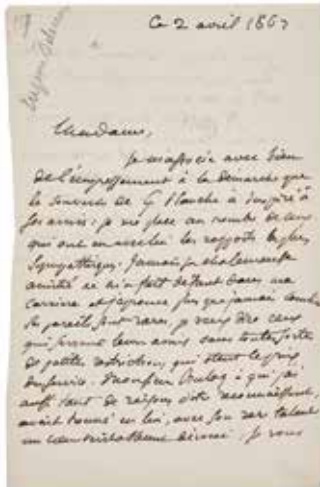 Ce 2 avril 1863
Madame,
Je m'associe avec bien
de l'empressement à la démarche que
le souvenir de G Planche a inspiré à
ses amis: je me place au nombre de ceux
qui ont eu avec lui les rapports les plus
sympathiques. Jamais sa chaleureuse
amitié ne m'a fait défaut dans ma
carrière et j'éprouve plus que jamais combien
ses pareils sont rares, je veux dire ceux
qui servent leurs amis sans toute sorte
de petites restrictions qui ôtent le prix
du service. Monsieur Buloz à qui j'ai
aussi tant de raisons d'être reconnaissant,
avait trouvé en lui, avec son rare talent
un cœur véritablement dévoué. Je vous